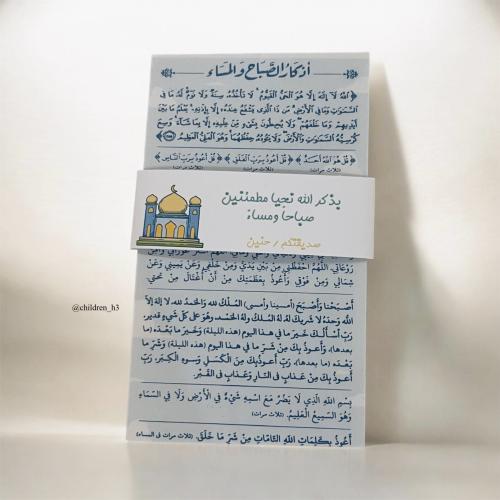 أذكار الصباح والمساء
﴿اللَّهُ لَا إِلَهَ إِلَّا هُوَ الْحَيُّ الْقَيُّومُ لَا تَأْخُذُهُ سِنَةٌ وَلَا نَوْمٌ لَّهُ مَا فِي
السَّمَاوَاتِ وَمَا فِي الْأَرْضِ مَن ذَا الَّذِي يَشْفَعُ عِندَهُ إِلَّا بِإِذْنِهِ يَعْلَمُ مَا بَيْنَ
أَيْدِيهِمْ وَمَا خَلْفَهُمْ وَلَا يُحِيطُونَ بِشَيْءٍ مِّنْ عِلْمِهِ إِلَّا بِمَا شَاءَ وَسِعَ
كُرْسِيُّهُ السَّمَاوَاتِ وَالْأَرْضَ وَلَا يَئُودُهُ حِفْظُهُمَا وَهُوَ الْعَلِيُّ الْعَظِيمُ﴾
﴿قُلْ هُوَ اللَّهُ أَحَدٌ﴾ ﴿قُلْ أَعُوذُ بِرَبِّ الْفَلَقِ﴾ ﴿قُلْ أَعُوذُ بِرَبِّ النَّاسِ﴾
(ثلاث مرات) (ثلاث مرات) (ثلاث مرات)
بذكر الله نحيا مطمئنين
صباحاً ومساءً
صديقتكم / حنين
رَوْعَاتِي، اللَّهُمَّ احْفَظْنِي مِنْ بَيْنِ يَدَيَّ وَمِنْ خَلْفِي وَعَنْ يَمِينِي وَعَنْ
شِمَالِي وَمِنْ فَوْقِي وَأَعُوذُ بِعَظَمَتِكَ مِنْ أَنْ أُغْتَالَ مِنْ تَحْتِي
أَصْبَحْنَا وَأَصْبَحَ (أمسينا وأمسى) الْمُلْكُ لله وَالْحَمْدُ لله، لا إِلهَ إلاّ
اللّهُ وَحْدَهُ لا شَرِيكَ لَهُ، لَهُ الْمُلْكُ وَلَهُ الْحَمْدُ وَهُوَ عَلَى كُلِّ شَيْءٍ قَدِيرٌ.
رَبِّ أَسْأَلُكَ خَيْرَ مَا فِي هَذَا اليَوْمِ (هذه الليلة) وَخَيْرَ مَا بَعْدَهُ (ما
بعدها)، وَأَعُوذُ بِكَ مِنْ شَرِّ مَا فِي هَذَا اليَوْمِ (هذه الليلة) وَشَرِّ مَا
بَعْدَهُ (ما بعدها)، رَبِّ أَعُوذُ بِكَ مِنْ الْكَسَلِ وَسُوءِ الْكِبَرِ، رَبِّ
أَعُوذُ بِكَ مِنْ عَذَابٍ فِي النَّارِ وَعَذَابٍ فِي القَبْرِ.
بِسْمِ اللهِ الَّذِي لَا يَضُرُّ مَعَ اسْمِهِ شَيْءٌ فِي الْأَرْضِ وَلَا فِي السَّمَاءِ
وَهُوَ السَّمِيعُ الْعَلِيمُ. (ثلاث مرات)
أَعُوذُ بِكَلِمَاتِ اللهِ التَّامَّاتِ مِنْ شَرِّ مَا خَلَقَ. (ثلاث مرات في المساء)
@children_h3